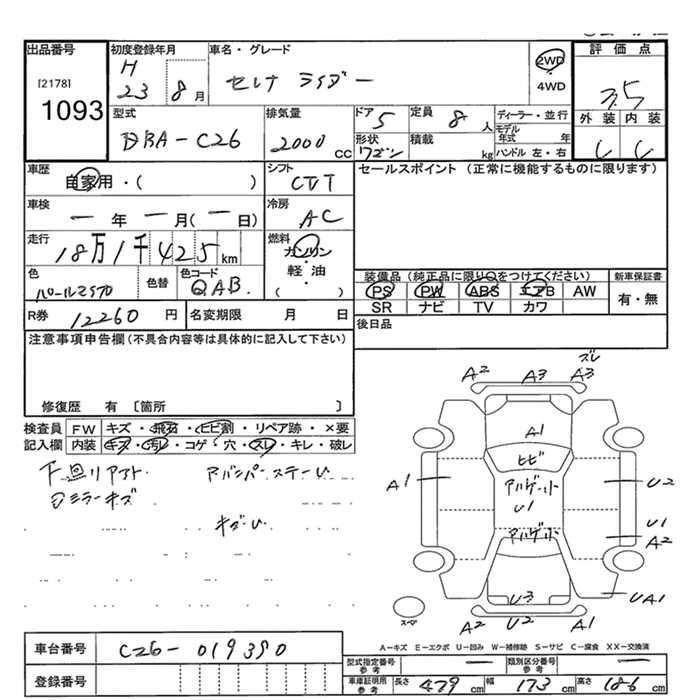 出品番号
[2178]
1093
初度登録年月
H
23 8月
車名・グレード
セレナ ライダー
2WD
・
4WD
評価点
3.5
外装 内装
C C
型式
DBA-C26
排気量
2000 CC
ドア 5
形状 ワゴン
定員 8 人
積載 kg
ディーラー・並行
モデル年式 年
ハンドル 左・右
車歴
自家用・( )
シフト
CVT
セールスポイント (正常に機能するものに限ります)
車検
ー年ー月(ー日)
冷房
AC
走行
18万1千425km
燃料
ガソリン
・
軽油
・
( )
色
パール
色替
色コード
QAB
装備品 (純正品に限り○をつけてください)
PS PW ABS エアB AW
SR ナビ TV カワ
新車保証書
有・無
R券 12260 円
名変期限 月 日
後日品
注意事項申告欄 (不具合内容等は具体的に記入して下さい)
修復歴 有 〔箇所 〕
検査員 FW キズ・飛石・ヒビ割・リペア跡・×要
記入欄 内装 キズ・汚レ・コゲ・穴・スレ・キレ・破レ
ミラーキズ
ズレ
A2 A3 A3
A1
ヒビ
A1
U1
U2
U1
A2
U3
UA1
A2 U2 A1
スペア
A-キズ E-エクボ U-凹み W-補修跡 S-サビ C-腐食 XX-交換済
車台番号 C26-019390
登録番号
型式指定番号 参考 ー
類別区分番号 参考 ー
車庫証明用 参考 長さ 479 cm 幅 173 cm 高さ 186 cm